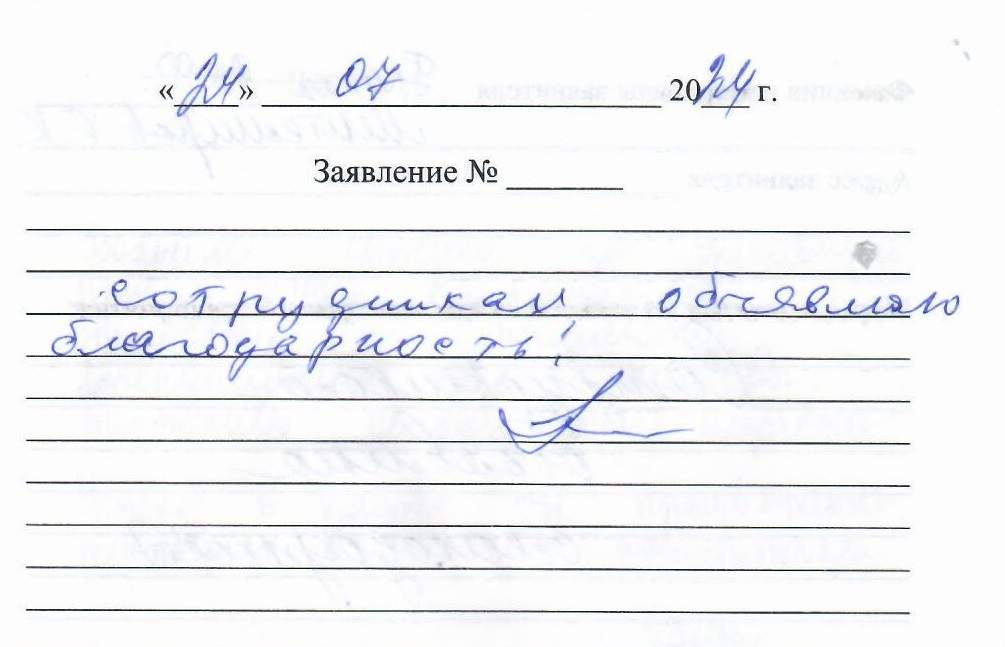 «24» 07 2024 г.
Заявление №
сотрудникам объявляю
благодарность!